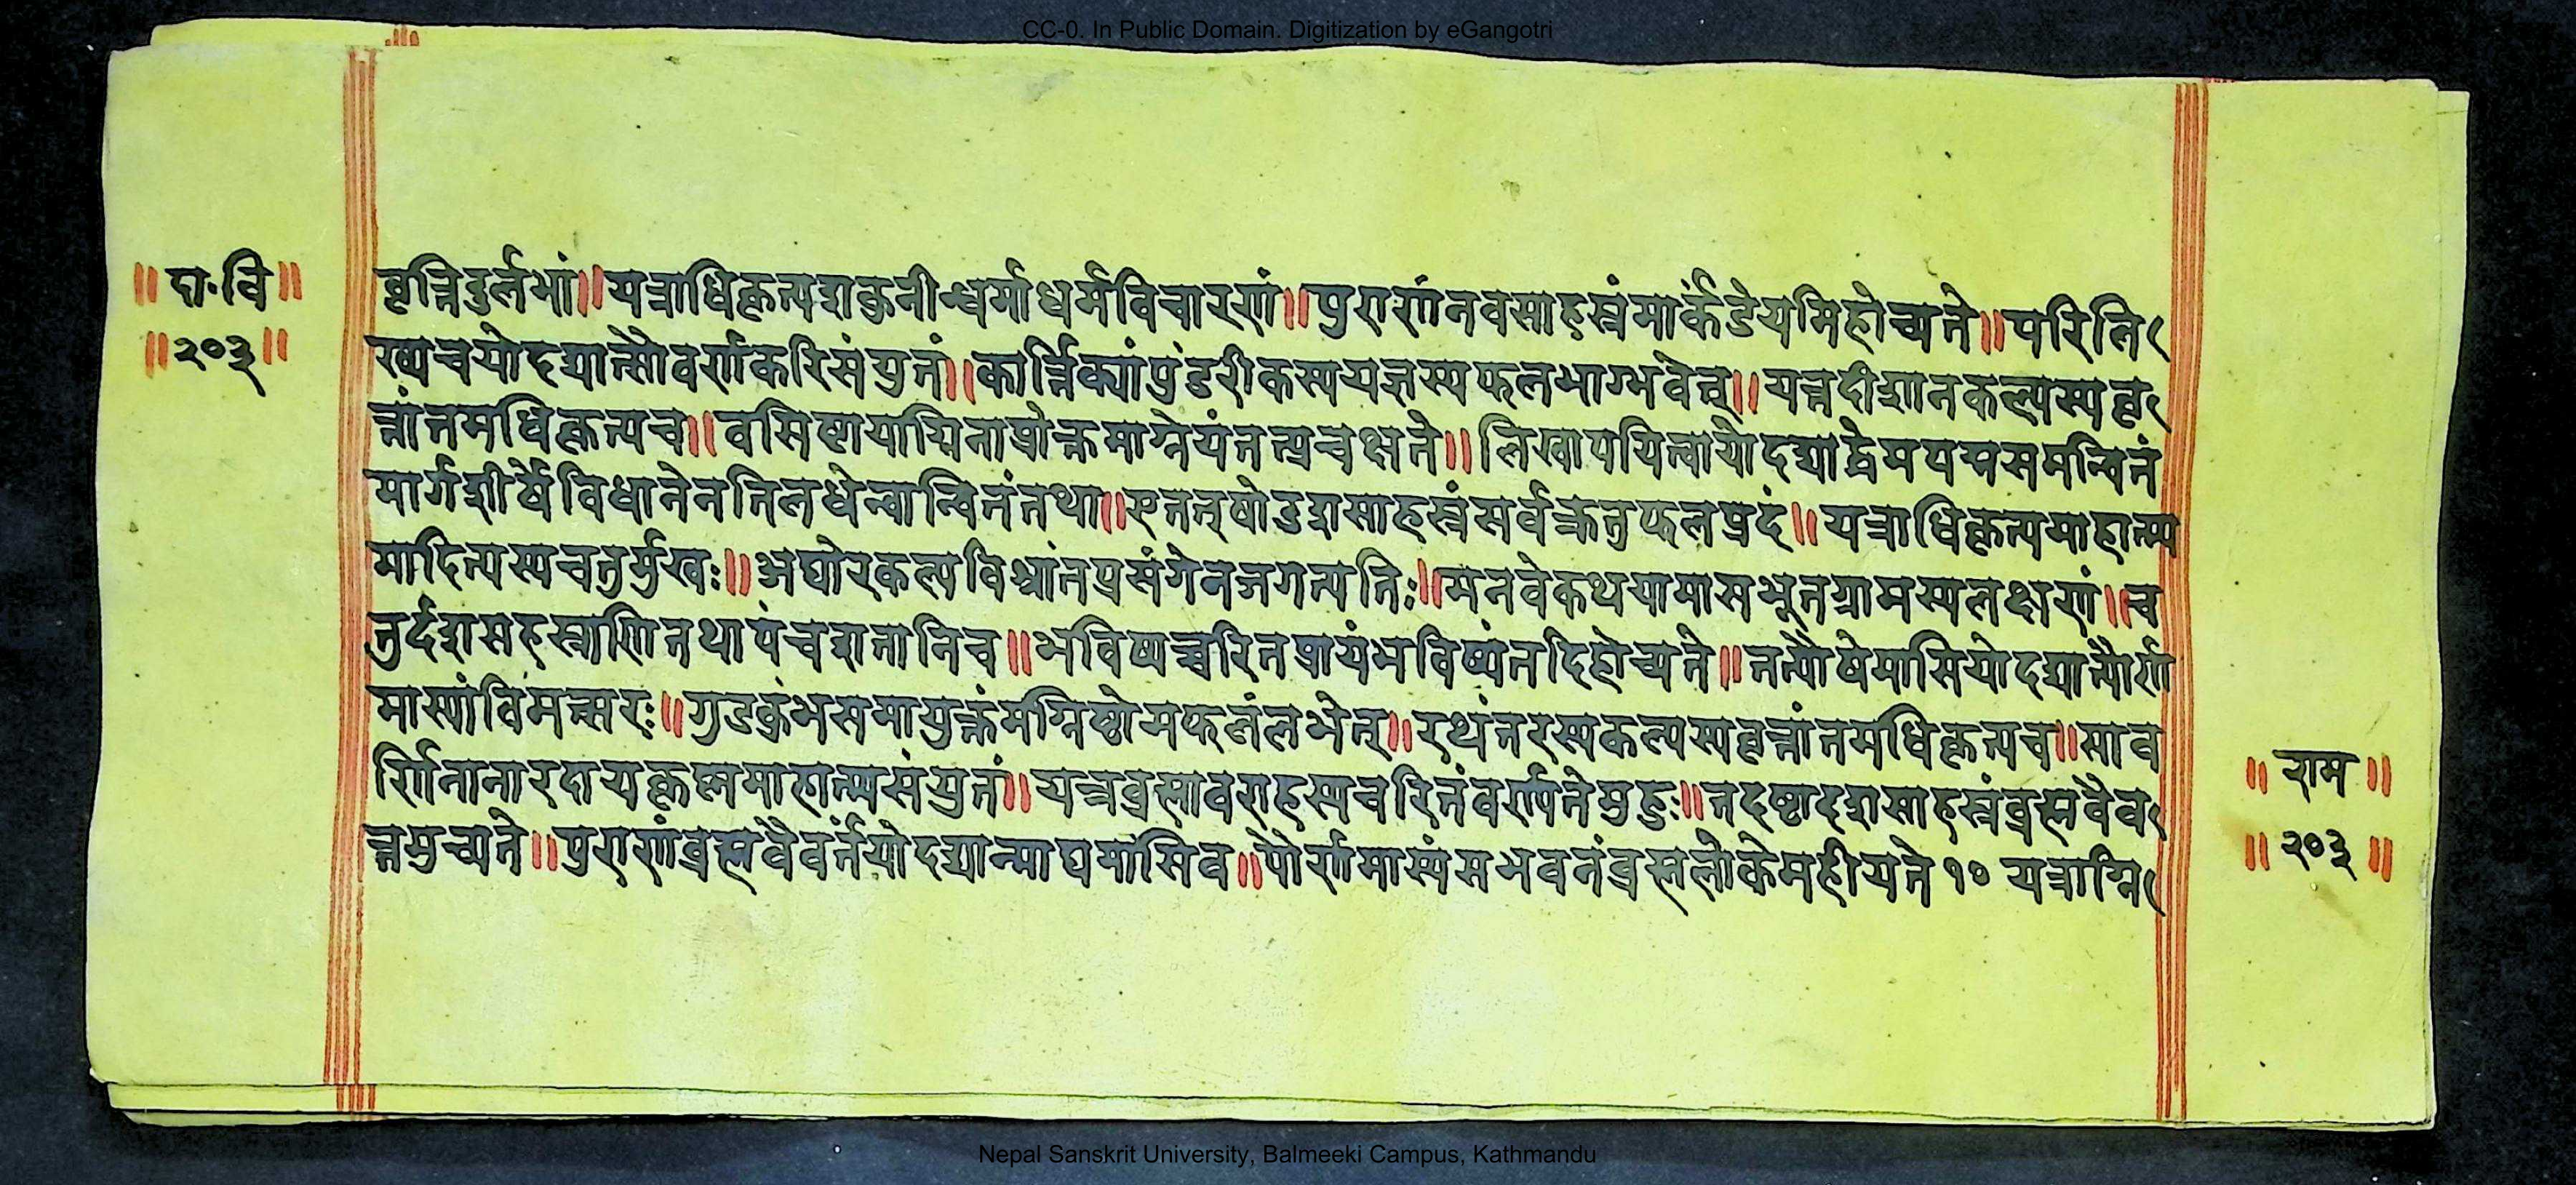 CC-0. In Public Domain. Digitization by eGangotri
॥ दा. वि॥
॥२०३॥
वृत्तिदुर्लभां॥ यत्राधिकृत्यशकुनीन्धर्माधर्मविचारणां॥ पुराणंनवसाहस्रंमार्कंडेयमिहोच्यते॥ परिलि
ख्यचयोदद्यात्सौवर्णकरिसंयुतं॥ कार्त्तिक्यांपुंडरीकस्ययज्ञस्यफलभाग्भवेत्॥ यत्तदीशानकल्पस्यवृ
त्तांतमधिकृत्यच॥ वसिष्ठायाग्निनाप्रोक्तमाग्नेयंतत्प्रचक्षते॥ लिखापयित्वायोदद्याद्धेमपद्मसमन्वितं
मार्गशीर्षेविधानेनतिलधेन्वान्वितंतथा॥ एतत्षोडशसाहस्रंसर्वक्रतुफलप्रदं॥ यत्राधिकृत्यमाहात्म्य
मादित्यस्यचतुर्मुखः॥ अघोरकल्पविश्रांतप्रसंगेनजगत्पतिः॥ मनवेकथयामासभूतग्रामस्यलक्षणं॥ च
तुर्दशसहस्राणितथापंचशतानिच॥ भविष्यच्चरितप्रायंभविष्यंतदिहोच्यते॥ तत्पौषेमासियोदद्यात्पौर्ण
मास्यांविमत्सरः॥ गुडकुंभसमायुक्तंमग्निष्टोमफलंलभेत्॥ रथंतरस्यकल्पस्यवृत्तांतमधिकृत्यच॥ साव
र्णिनानारदायकृष्णमाहात्म्यसंयुतं॥ यत्रब्रह्मावराहस्यचरितंवर्ण्यतेमुहुः॥ तदष्टादशसाहस्रंब्रह्मवैव
र्त्तमुच्यते॥ पुराणंब्रह्मवैवर्तंयोदद्यान्माघमासिव॥ पौर्णमास्यंसभवनंब्रह्मलोकेमहीयते १० यत्राग्नि
॥ राम ॥
॥ २०३ ॥
Nepal Sanskrit University, Balmeeki Campus, Kathmandu